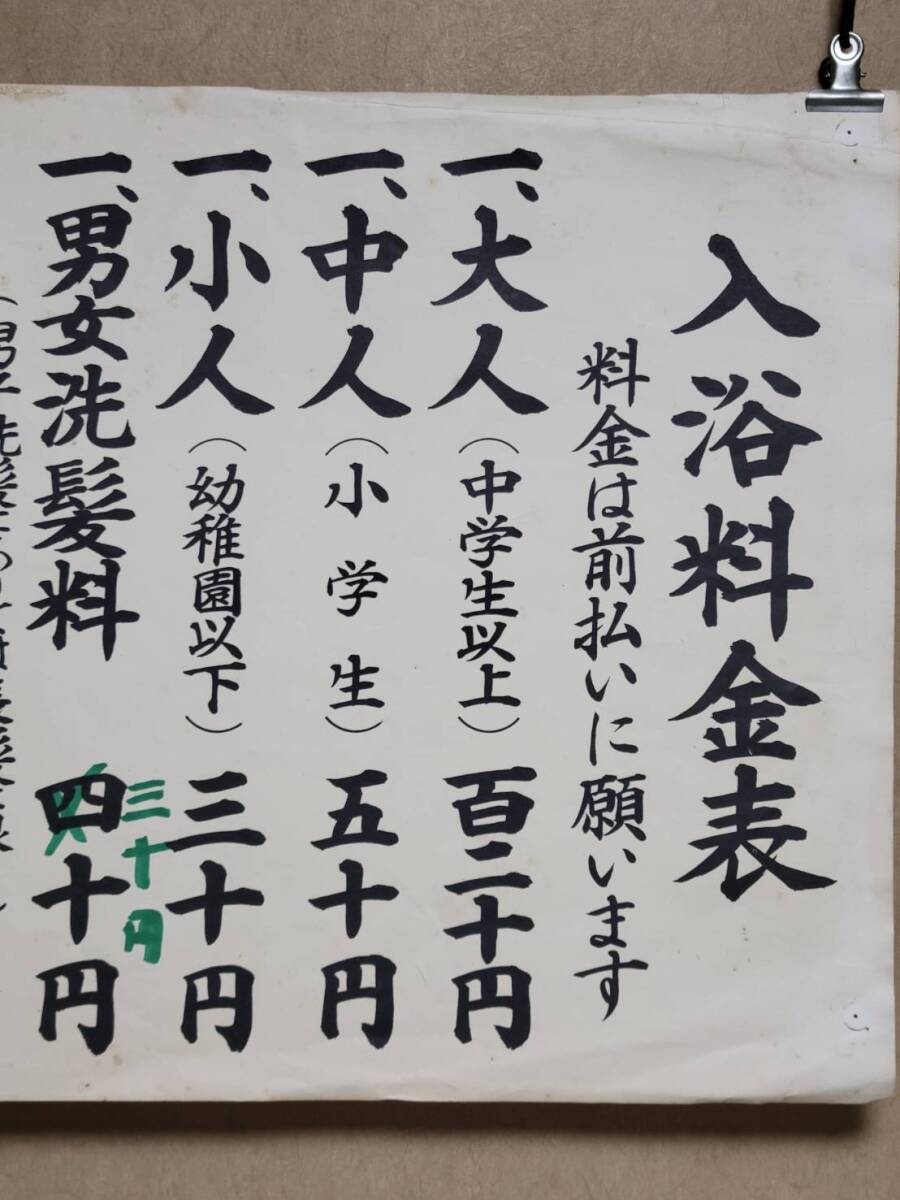 入浴料金表
料金は前払いに願います
一、大人（中学生以上）百二十円
一、中人（小学生）五十円
一、小人（幼稚園以下）三十円
一、男女洗髪料 四十円
三十円